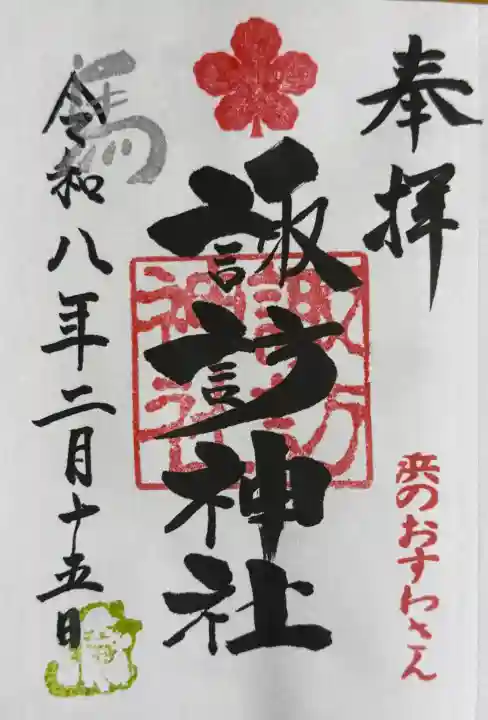 奉拝
浜のおすわさん
諏訪神社
諏訪
神社
馬
令和八年二月十五日